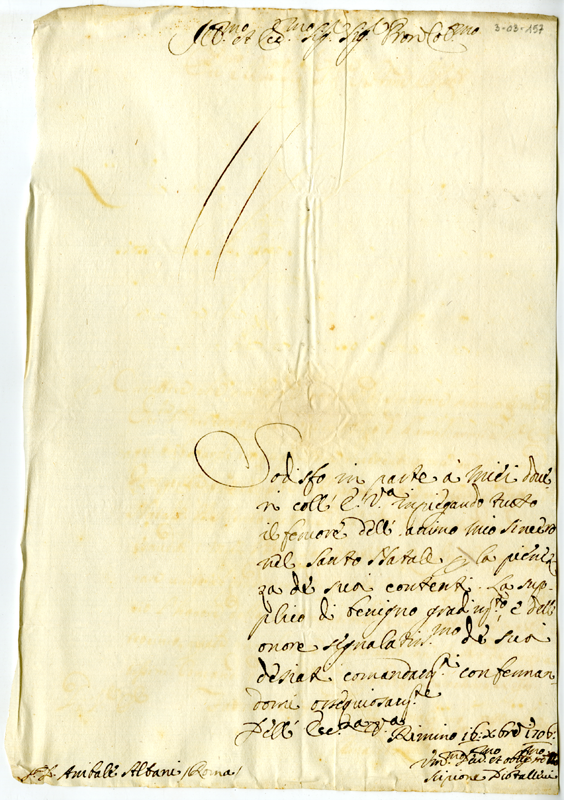 Ill.mo et Ecc.mo Sig.r Sig.r Pron Col.mo
3-03-157
Sodisfo in parte à miei dove
ri coll' E. V.a impiegando tutto
il fervore dell' animo mio sincero
nel Santo Natale la pienez
za de suoi contenti. La sup
plico di benigno gradim.to, e dell'
onore segnalatiss.mo de suoi
desiat comandam.ti conferman
domi ossequiosam.te
Dell' Ecc.za V.a
Rimino 16: Xbre 1706:
Um.mo Dev.mo et obblig.mo
Scipione
Anibale Albani (Roma)